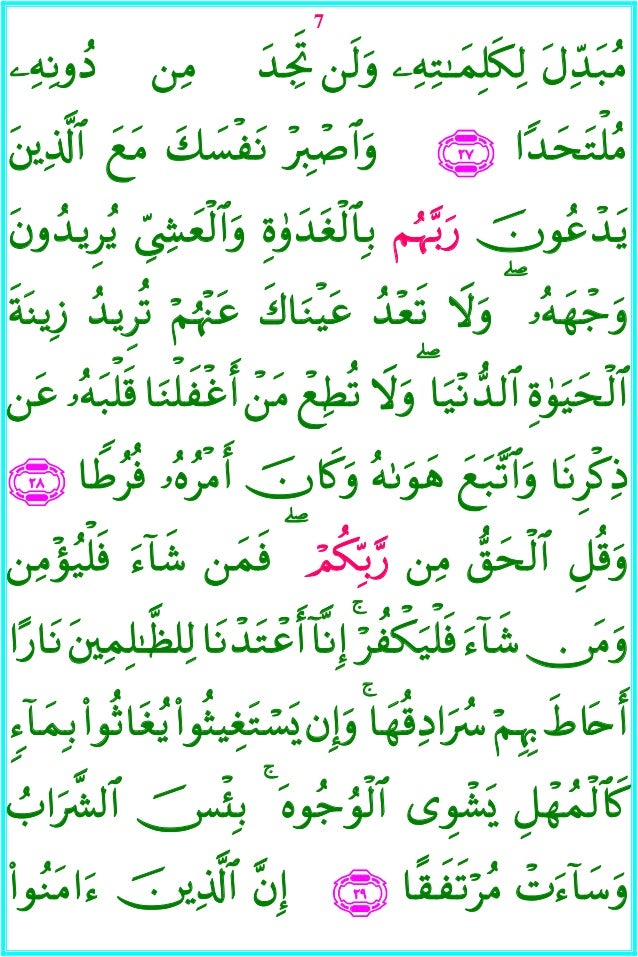 7
مُبَدِّلَ لِكَلِمَـٰتِهِۦ وَلَن تَجِدَ مِن دُونِهِۦ
مُلْتَحَدًا ٢٧ وَٱصْبِرْ نَفْسَكَ مَعَ ٱلَّذِينَ
يَدْعُونَ رَبَّهُم بِٱلْغَدَوٰةِ وَٱلْعَشِىِّ يُرِيدُونَ
وَجْهَهُۥ ۖ وَلَا تَعْدُ عَيْنَاكَ عَنْهُمْ تُرِيدُ زِينَةَ
ٱلْحَيَوٰةِ ٱلدُّنْيَا ۖ وَلَا تُطِعْ مَنْ أَغْفَلْنَا قَلْبَهُۥ عَن
ذِكْرِنَا وَٱتَّبَعَ هَوَىٰهُ وَكَانَ أَمْرُهُۥ فُرُطًا ٢٨
وَقُلِ ٱلْحَقُّ مِن رَّبِّكُمْ ۖ فَمَن شَآءَ فَلْيُؤْمِن
وَمَن شَآءَ فَلْيَكْفُرْ ۚ إِنَّآ أَعْتَدْنَا لِلظَّـٰلِمِينَ نَارًا
أَحَاطَ بِهِمْ سُرَادِقُهَا ۚ وَإِن يَسْتَغِيثُوا۟ يُغَاثُوا۟ بِمَآءٍ
كَٱلْمُهْلِ يَشْوِى ٱلْوُجُوهَ ۚ بِئْسَ ٱلشَّرَابُ
وَسَآءَتْ مُرْتَفَقًا ٢٩ إِنَّ ٱلَّذِينَ ءَامَنُوا۟